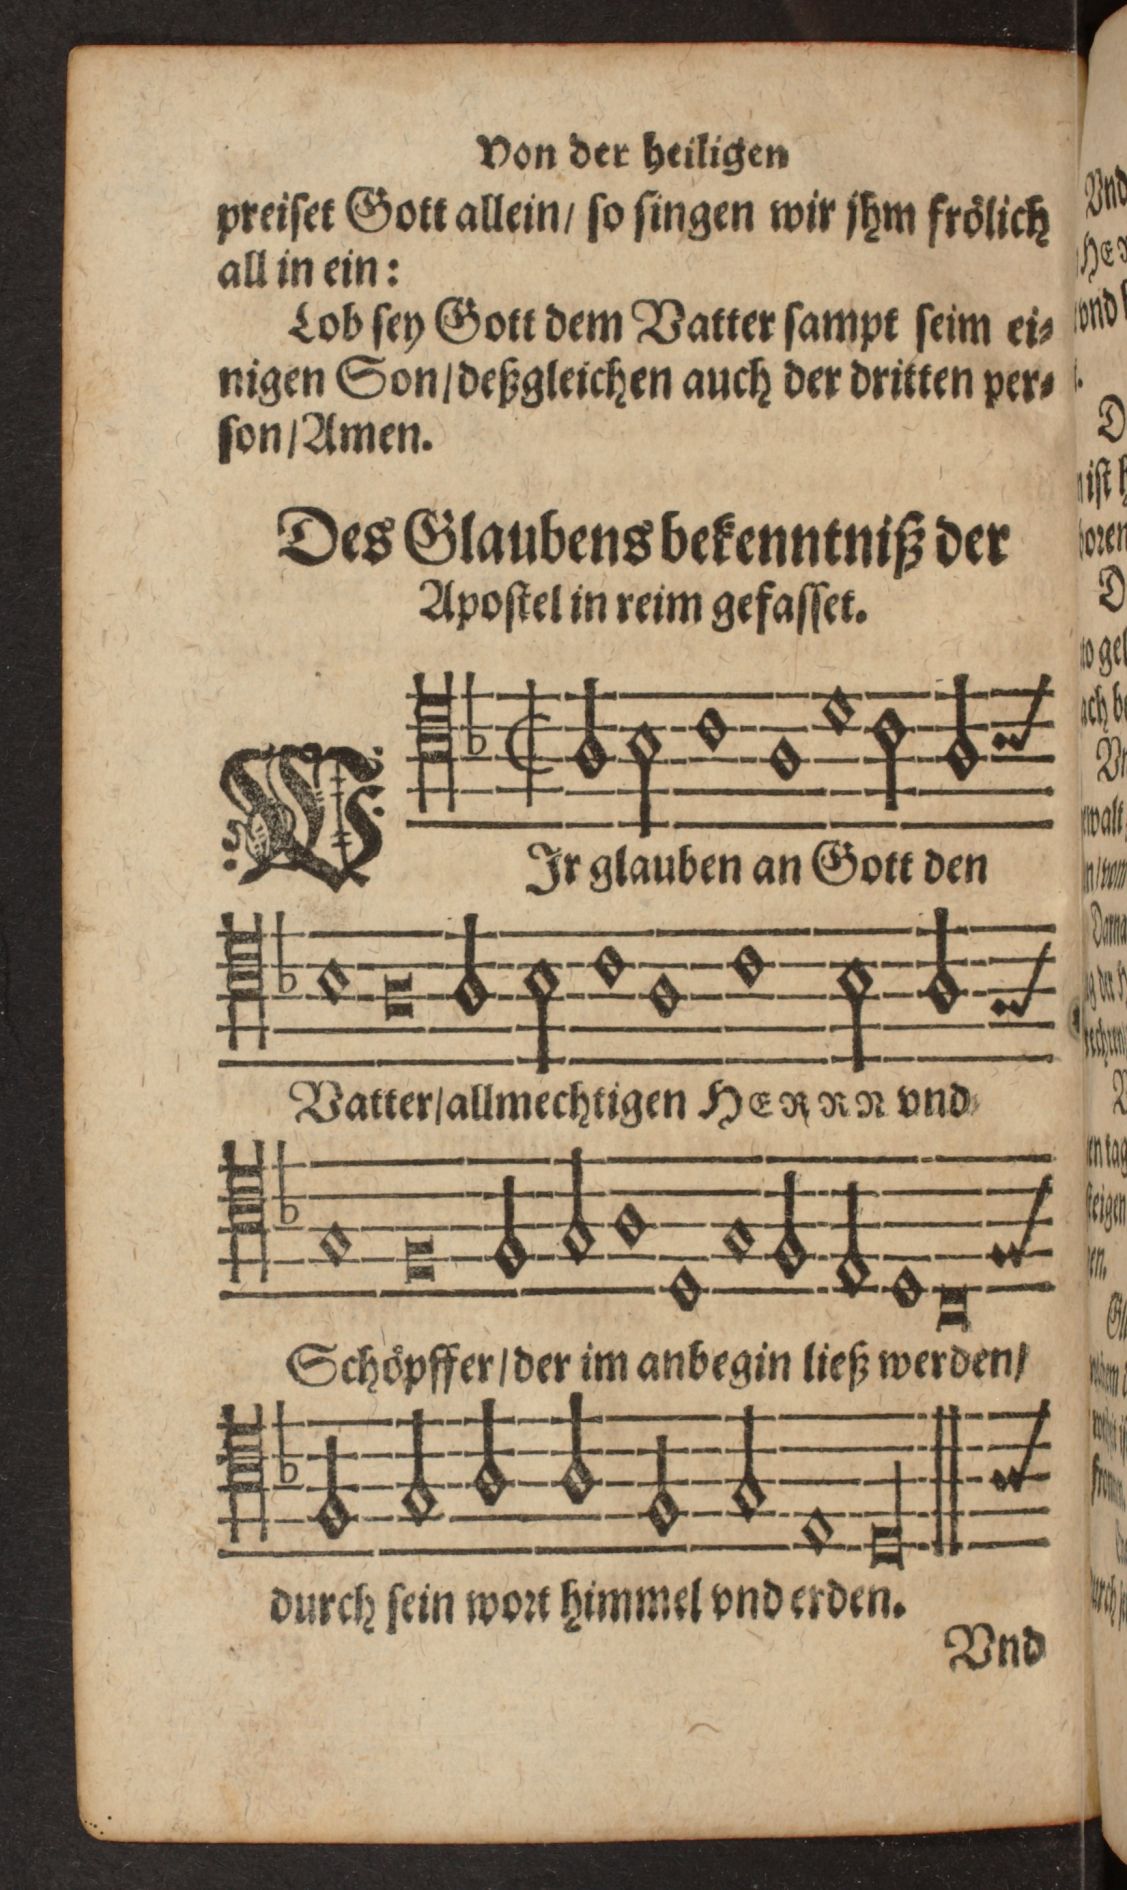 Von der heiligen
preiset Gott allein/ so singen wir jhm frölich
all in ein:
Lob sey Gott dem Vatter sampt seim ei⸗
nigen Son/deßgleichen auch der dritten per⸗
son/Amen.
Des Glaubens bekenntniß der
Apostel in reim gefasset.
WJr glauben an Gott den
Vatter/allmechtigen HERRN vnd
Schöpffer/der im anbegin ließ werden/
durch sein wort himmel vnd erden.
Vnd